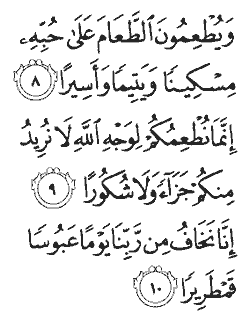 وَيُطْعِمُونَ ٱلطَّعَامَ عَلَىٰ حُبِّهِۦ
مِسْكِينًا وَيَتِيمًا وَأَسِيرًا ٨
إِنَّمَا نُطْعِمُكُمْ لِوَجْهِ ٱللَّهِ لَا نُرِيدُ
مِنكُمْ جَزَآءً وَلَا شُكُورًا ٩
إِنَّا نَخَافُ مِن رَّبِّنَا يَوْمًا عَبُوسًا
قَمْطَرِيرًا ١٠